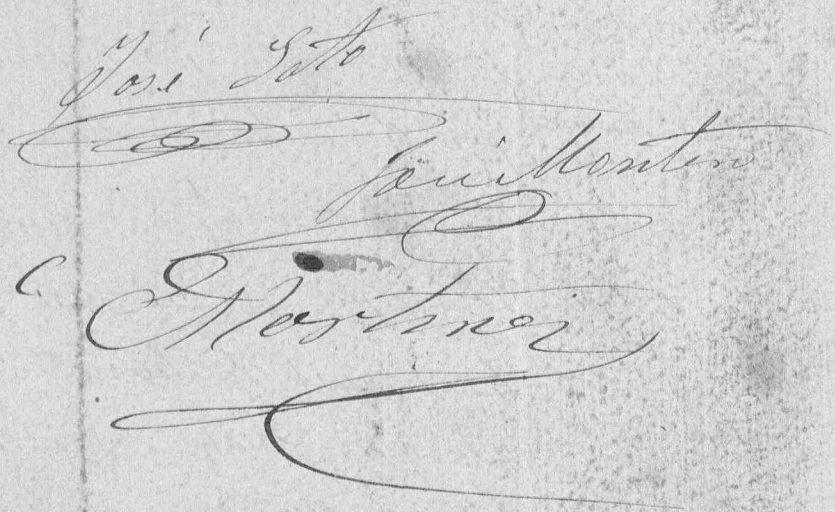 José Soto
José Monten
Martinez